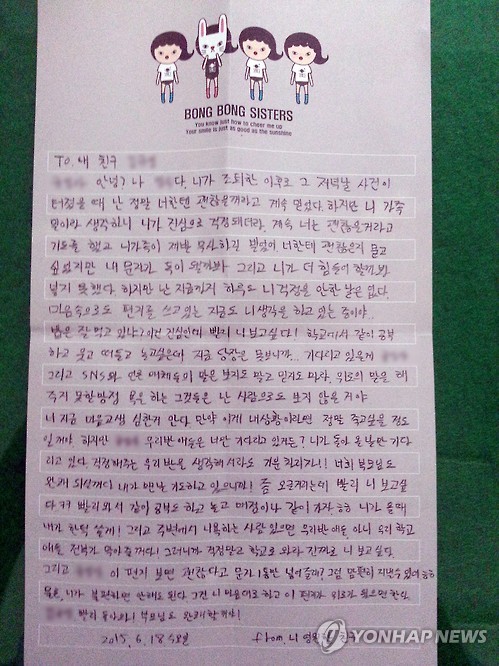 BONG BONG SISTERS
You know just how to cheer me up
Your smile is just as good as the sunshine
TO. 내 친구
안녕? 나 다. 니가 조퇴한 이후로 그 저녁날 사건이
터졌을 때 난 정말 너한텐 괜찮을꺼라고 계속 믿었다. 하지만 니 가족
일이라 생각하니 니가 진심으로 걱정돼더라. 계속 너는 괜찮을거라고
기도를 했고 니가족이 제발 무사하길 빌었어 너한테 괜찮은지 묻고
싶었지만 내 문자가 독이 될까봐 그리고 니가 더 힘들어 할까봐
넣지 못했다. 하지만 난 지금까지 하루도 니 걱정을 안한 날은 없다.
마음속으로도 편지를 쓰고있는 지금도 니 생각을 하고 있는 중이야.
밥은 잘 먹고 있나? 이건 진심인데 빨리 니 보고싶다! 학교에서 같이 공부
하고 웃고 떠들고 놀고싶은데 지금 당장은 못보니까... 기다리고 있을게
그리고 SNS와 언론 매체들의 말은 보지도 말고 믿지도 마라. 위로의 말을 해
주지 못할망정 욕을 하는 그것들은 난 사람으로도 보지 않은 거야
니 지금 마음고생 심한거 안다. 만약 이게 내상황이라면 정말 죽고싶을 정도
일꺼야 하지만 우리반 애들은 너만 기다리고 있거든? 니가 돌아올 날만 기다
리고 있다. 걱정해주는 우리반을 생각해서라도 기운 차리자!! 너희 부모님도
완쾌 되실꺼다 내가 맨날 기도하고 있으니까! 좀 오글거리는데 빨리 니 보고싶
다 ㅋㅋ 빨리와서 같이 공부도 하고 놀고 매점이나 같이 가자 ㅎㅎ 니가 올때
내가 한턱 쏠게! 그리고 주변에서 니욕하는 사람 있으면 우리반 애들 아니 우리 학교
애들 전부가 막아줄꺼다! 그러니까 걱정말고 학교로 와라 진짜로 니 보고싶다.
그리고 이 편지 보면 괜찮다고 문자 1통만 넣어줄래? 그럼 맘편히 지낼수 있어 ㅎㅎ
물론, 니가 불편하면 안해도 된다. 그건 니 마음대로 하고 이 편지가 위로가 됐으면 한다.
빨리 돌아와! 니 부모님도 완쾌할꺼다!
2015. 6. 18
from. 니 친구
YONHAPNEWS